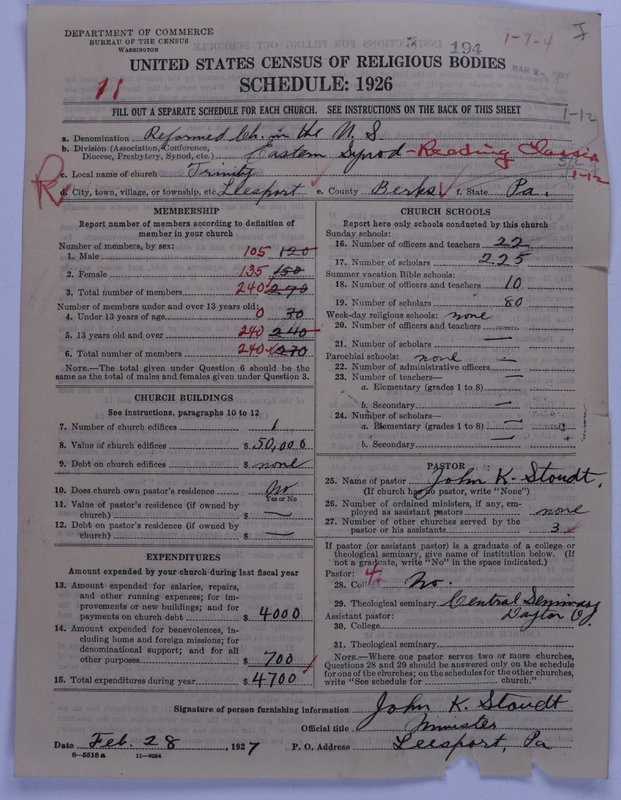 DEPARTMENT OF COMMERCE
BUREAU OF THE CENSUS
WASHINGTON
194
1-7-4
UNITED STATES CENSUS OF RELIGIOUS BODIES
SCHEDULE: 1926
11
FILL OUT A SEPARATE SCHEDULE FOR EACH CHURCH. SEE INSTRUCTIONS ON THE BACK OF THIS SHEET
1-12
a. Denomination Reformed Ch. in the U. S.
b. Division (Association, Conference, Diocese, Presbytery, Synod, etc.) Eastern Synod - Reading Classis
1-12
c. Local name of church Trinity
R
d. City, town, village, or township, etc. Leesport e. County Berks f. State Pa.
MEMBERSHIP
Report number of members according to definition of
member in your church
Number of members, by sex:
1. Male 105 120
2. Female 135 150
3. Total number of members 240 270
Number of members under and over 13 years old:
4. Under 13 years of age 0 30
5. 13 years old and over 240 240
6. Total number of members 240 270
NOTE.—The total given under Question 6 should be
same as the total of males and females given under Question 3.
CHURCH BUILDINGS
See instructions, paragraphs 10 to 12
7. Number of church edifices 1
8. Value of church edifices $ 50,000
9. Debt on church edifices $ none
10. Does church own pastor's residence No
Yes or No
11. Value of pastor's residence (if owned by
church) $ —
12. Debt on pastor's residence (if owned by
church) $ —
EXPENDITURES
Amount expended by your church during last fiscal year
13. Amount expended for salaries, repairs,
and other running expenses; for im-
provements or new buildings; and for
payments on church debt $ 4000
14. Amount expended for benevolences, in-
cluding home and foreign missions; for
denominational support; and for all
other purposes $ 700
15. Total expenditures during year $ 4700
CHURCH SCHOOLS
Report here only schools conducted by this church
Sunday schools:
16. Number of officers and teachers 22
17. Number of scholars 225
Summer vacation Bible schools:
18. Number of officers and teachers 10
19. Number of scholars 80
Week-day religious schools: none
20. Number of officers and teachers —
21. Number of scholars —
Parochial schools: none —
22. Number of administrative officers
23. Number of teachers— —
a. Elementary (grades 1 to 8)
b. Secondary —
24. Number of scholars—
a. Elementary (grades 1 to 8) —
b. Secondary —
PASTOR
25. Name of pastor John K. Stoudt,
(If church has no pastor, write "None")
26. Number of ordained ministers, if any, em-
ployed as assistant pastors none
27. Number of other churches served by the
pastor or his assistants 3
If pastor (or assistant pastor) is a graduate of a college or
theological seminary, give name of institution below. (If
not a graduate, write "No" in the space indicated.)
Pastor: 4
28. College No.
29. Theological seminary Central Seminary
Assistant pastor: Dayton O.
30. College
31. Theological seminary
NOTE.—Where one pastor serves two or more churches,
Questions 28 and 29 should be answered only on the schedule
for one of the churches; on the schedules for the other churches,
write "See schedule for church."
Signature of person furnishing information John K. Stoudt
Official title Minister
Date Feb. 28, 1927 P. O. Address Leesport, Pa
8—5518a 11—9064